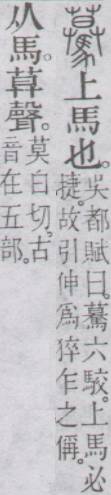 驀上馬也。
吳都賦曰。驀六駮。上馬必
捷。故引伸爲猝乍之偁。
从馬。𦱤聲。
莫白切。古
音在五部。